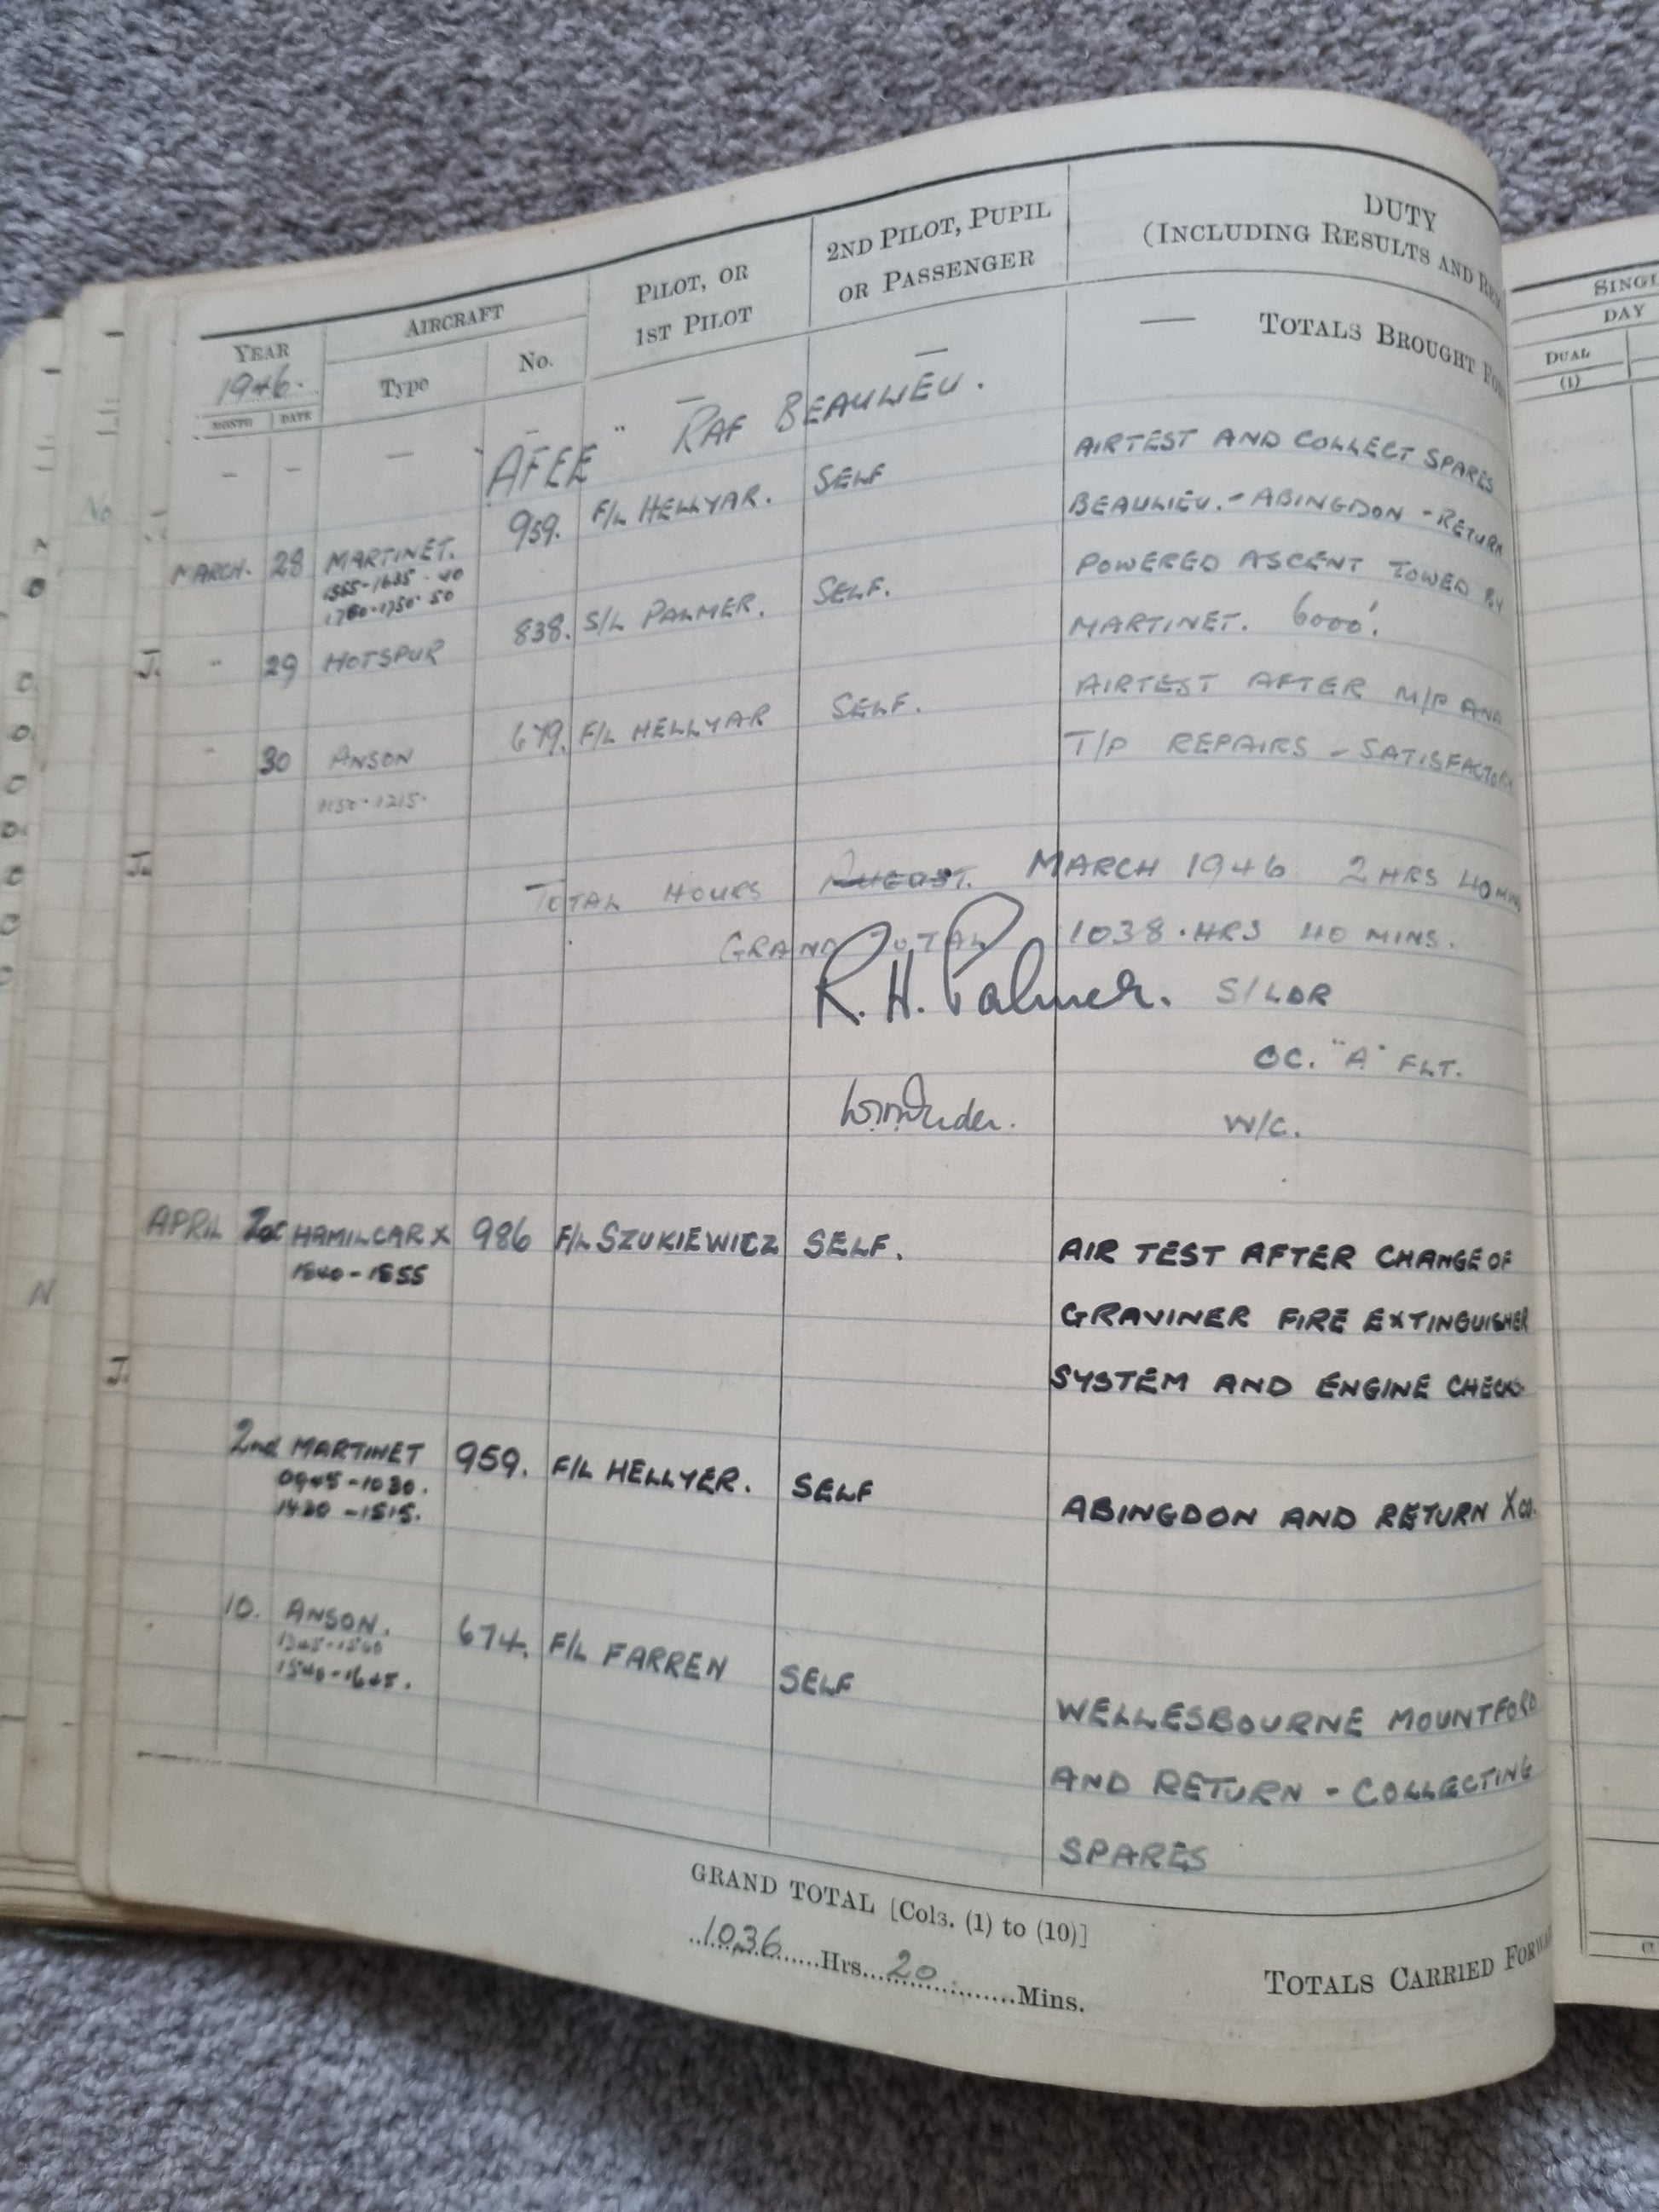 YEAR 1946. AIRCRAFT PILOT, OR 1ST PILOT 2ND PILOT, PUPIL OR PASSENGER DUTY
(INCLUDING RESULTS AND REM
MONTH DATE Type No.
— — — — — — — TOTALS BROUGHT FOR
AFEE " RAF BEAULIEU.
MARCH. 28 MARTINET. 959. F/L HELLYAR. SELF AIRTEST AND COLLECT SPARES
1555-1635 . 40 BEAULIEU. - ABINGDON - RETURN
1700-1750. 50
" 29 HOTSPUR 838. S/L PALMER. SELF. POWERED ASCENT TOWED BY
MARTINET. 6000'.
" 30 ANSON 679. F/L HELLYAR SELF. AIRTEST AFTER M/P AND
1150-1215. T/P REPAIRS - SATISFACTORY
TOTAL HOURS AUGUST. MARCH 1946 2 HRS 40 MINS
GRAND TOTAL 1038. HRS 40 MINS.
R. H. Palmer. S/LDR
OC. "A" FLT.
W/C.
APRIL HAMILCAR X 986 F/L SZUKIEWICZ SELF. AIR TEST AFTER CHANGE OF
1840-1855 GRAVINER FIRE EXTINGUISHER
SYSTEM AND ENGINE CHECKS.
2nd MARTINET 959. F/L HELLYER. SELF ABINGDON AND RETURN Xco.
0945-1030.
1430-1515.
10. ANSON. 674. F/L FARREN SELF WELLESBOURNE MOUNTFORD
1540-1645. AND RETURN - COLLECTING
SPARES
GRAND TOTAL [Cols. (1) to (10)]
1036 Hrs. 20 Mins.
TOTALS CARRIED FORWA
SINGL
DAY
DUAL
(1)